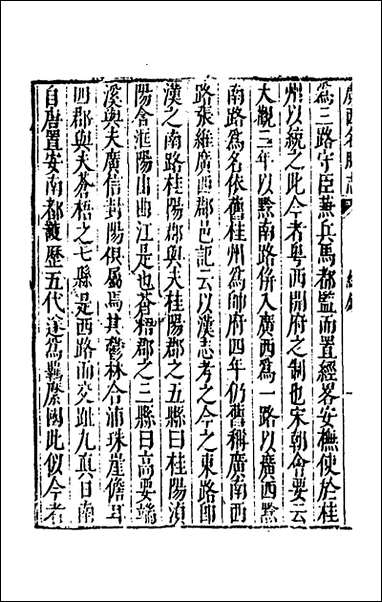 廣西名勝志
為三路守臣兼兵馬都監而置經畧安撫使於桂
州以統之此今者粤西開府之制也宋朝會要云
大觀三年以黔南路併入廣西為一路以廣西黔
南路為名依舊桂州為帥府四年仍舊稱廣南西
路張維廣西郡邑記云以漢志考之今之東路即
漢之南路桂陽郡與夫桂陽郡之五縣曰桂陽湞
陽含洭陽山曲江是也蒼梧郡之三縣曰高要端
溪與夫廣信封陽俱屬焉其鬱林合浦珠崖儋耳
四郡與夫蒼梧之七縣是西路而交趾九真日南
自唐置安南都護歷五代遂為羈縻國此似今者